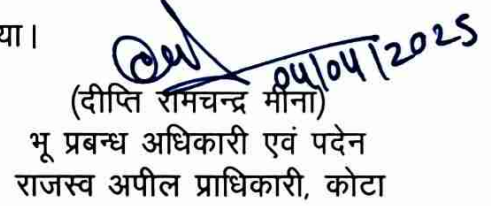 या।
04/04/2025
(दीप्ति रामचन्द्र मीना)
भू प्रबन्ध अधिकारी एवं पदेन
राजस्व अपील प्राधिकारी, कोटा